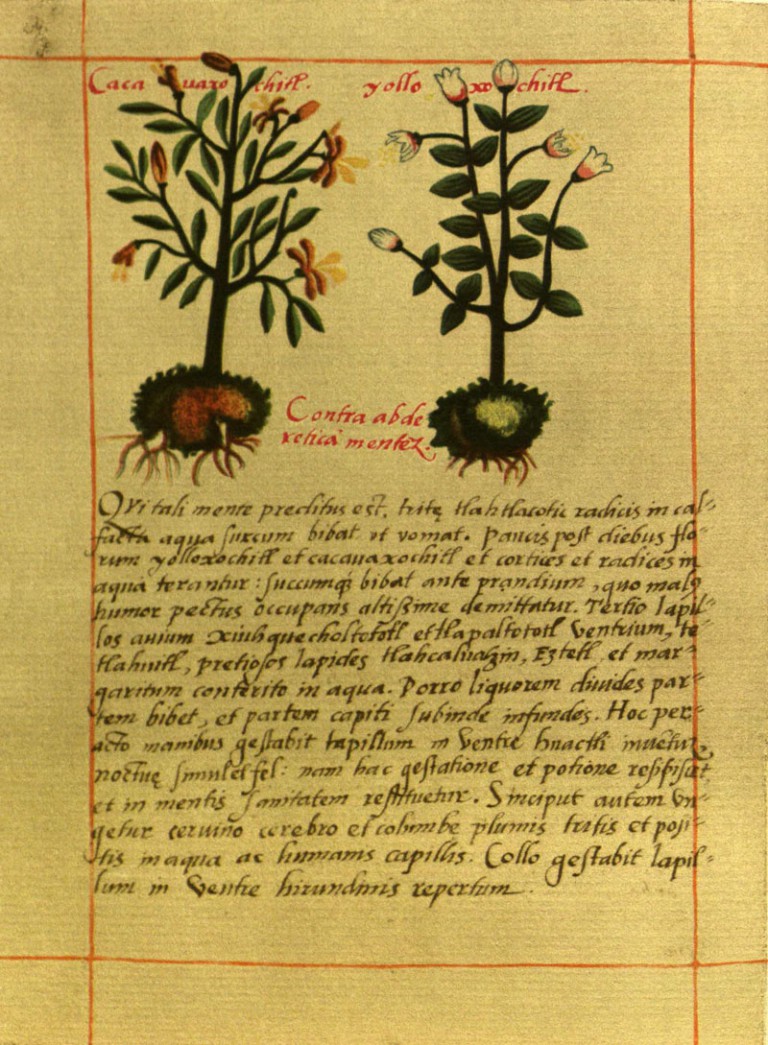 Caca uaxo chitl.
yollo xo chitl.
Contra abde
reticā mentez.
QVi tali mente preditus est, tritę tlahtlacotic radicis in cal⸗
facta aqua succum bibat ut vomat. Paucis post diebus flo⸗
rum yolloxochitl et cacauaxochitl et cortices et radices in
aqua terantur: succumqȝ bibat ante prandium, quo malꝰ
humor pectus occupans altissime demittatur. Tertio lapil⸗
los auium xiuhquecholtototl et tlapaltototl ventrium, te⸗
tlahuitl, pretiosos lapides tlahcalhuatzin, Eztetl et mar⸗
garitum conterito in aqua. Porro liquorem diuides par⸗
tem bibet, et partem capiti subinde infundes. Hoc per⸗
acto manibus gestabit lapillum in ventre huactli
noctuę simul et fel: nam hac gestatione et potione resipiscet,
et in mentis sanitatem restituetur. Sinciput autem vn⸗
getur ceruino cerebro et columbe plumis tritis et posi⸗
tis in aqua ac humanis capillis. Collo gestabit lapil⸗
lum in ventre hirundinis repertum.